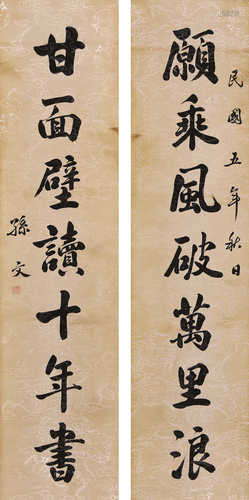 民國五年秋日
願乘風破萬里浪
甘面壁讀十年書
孫文